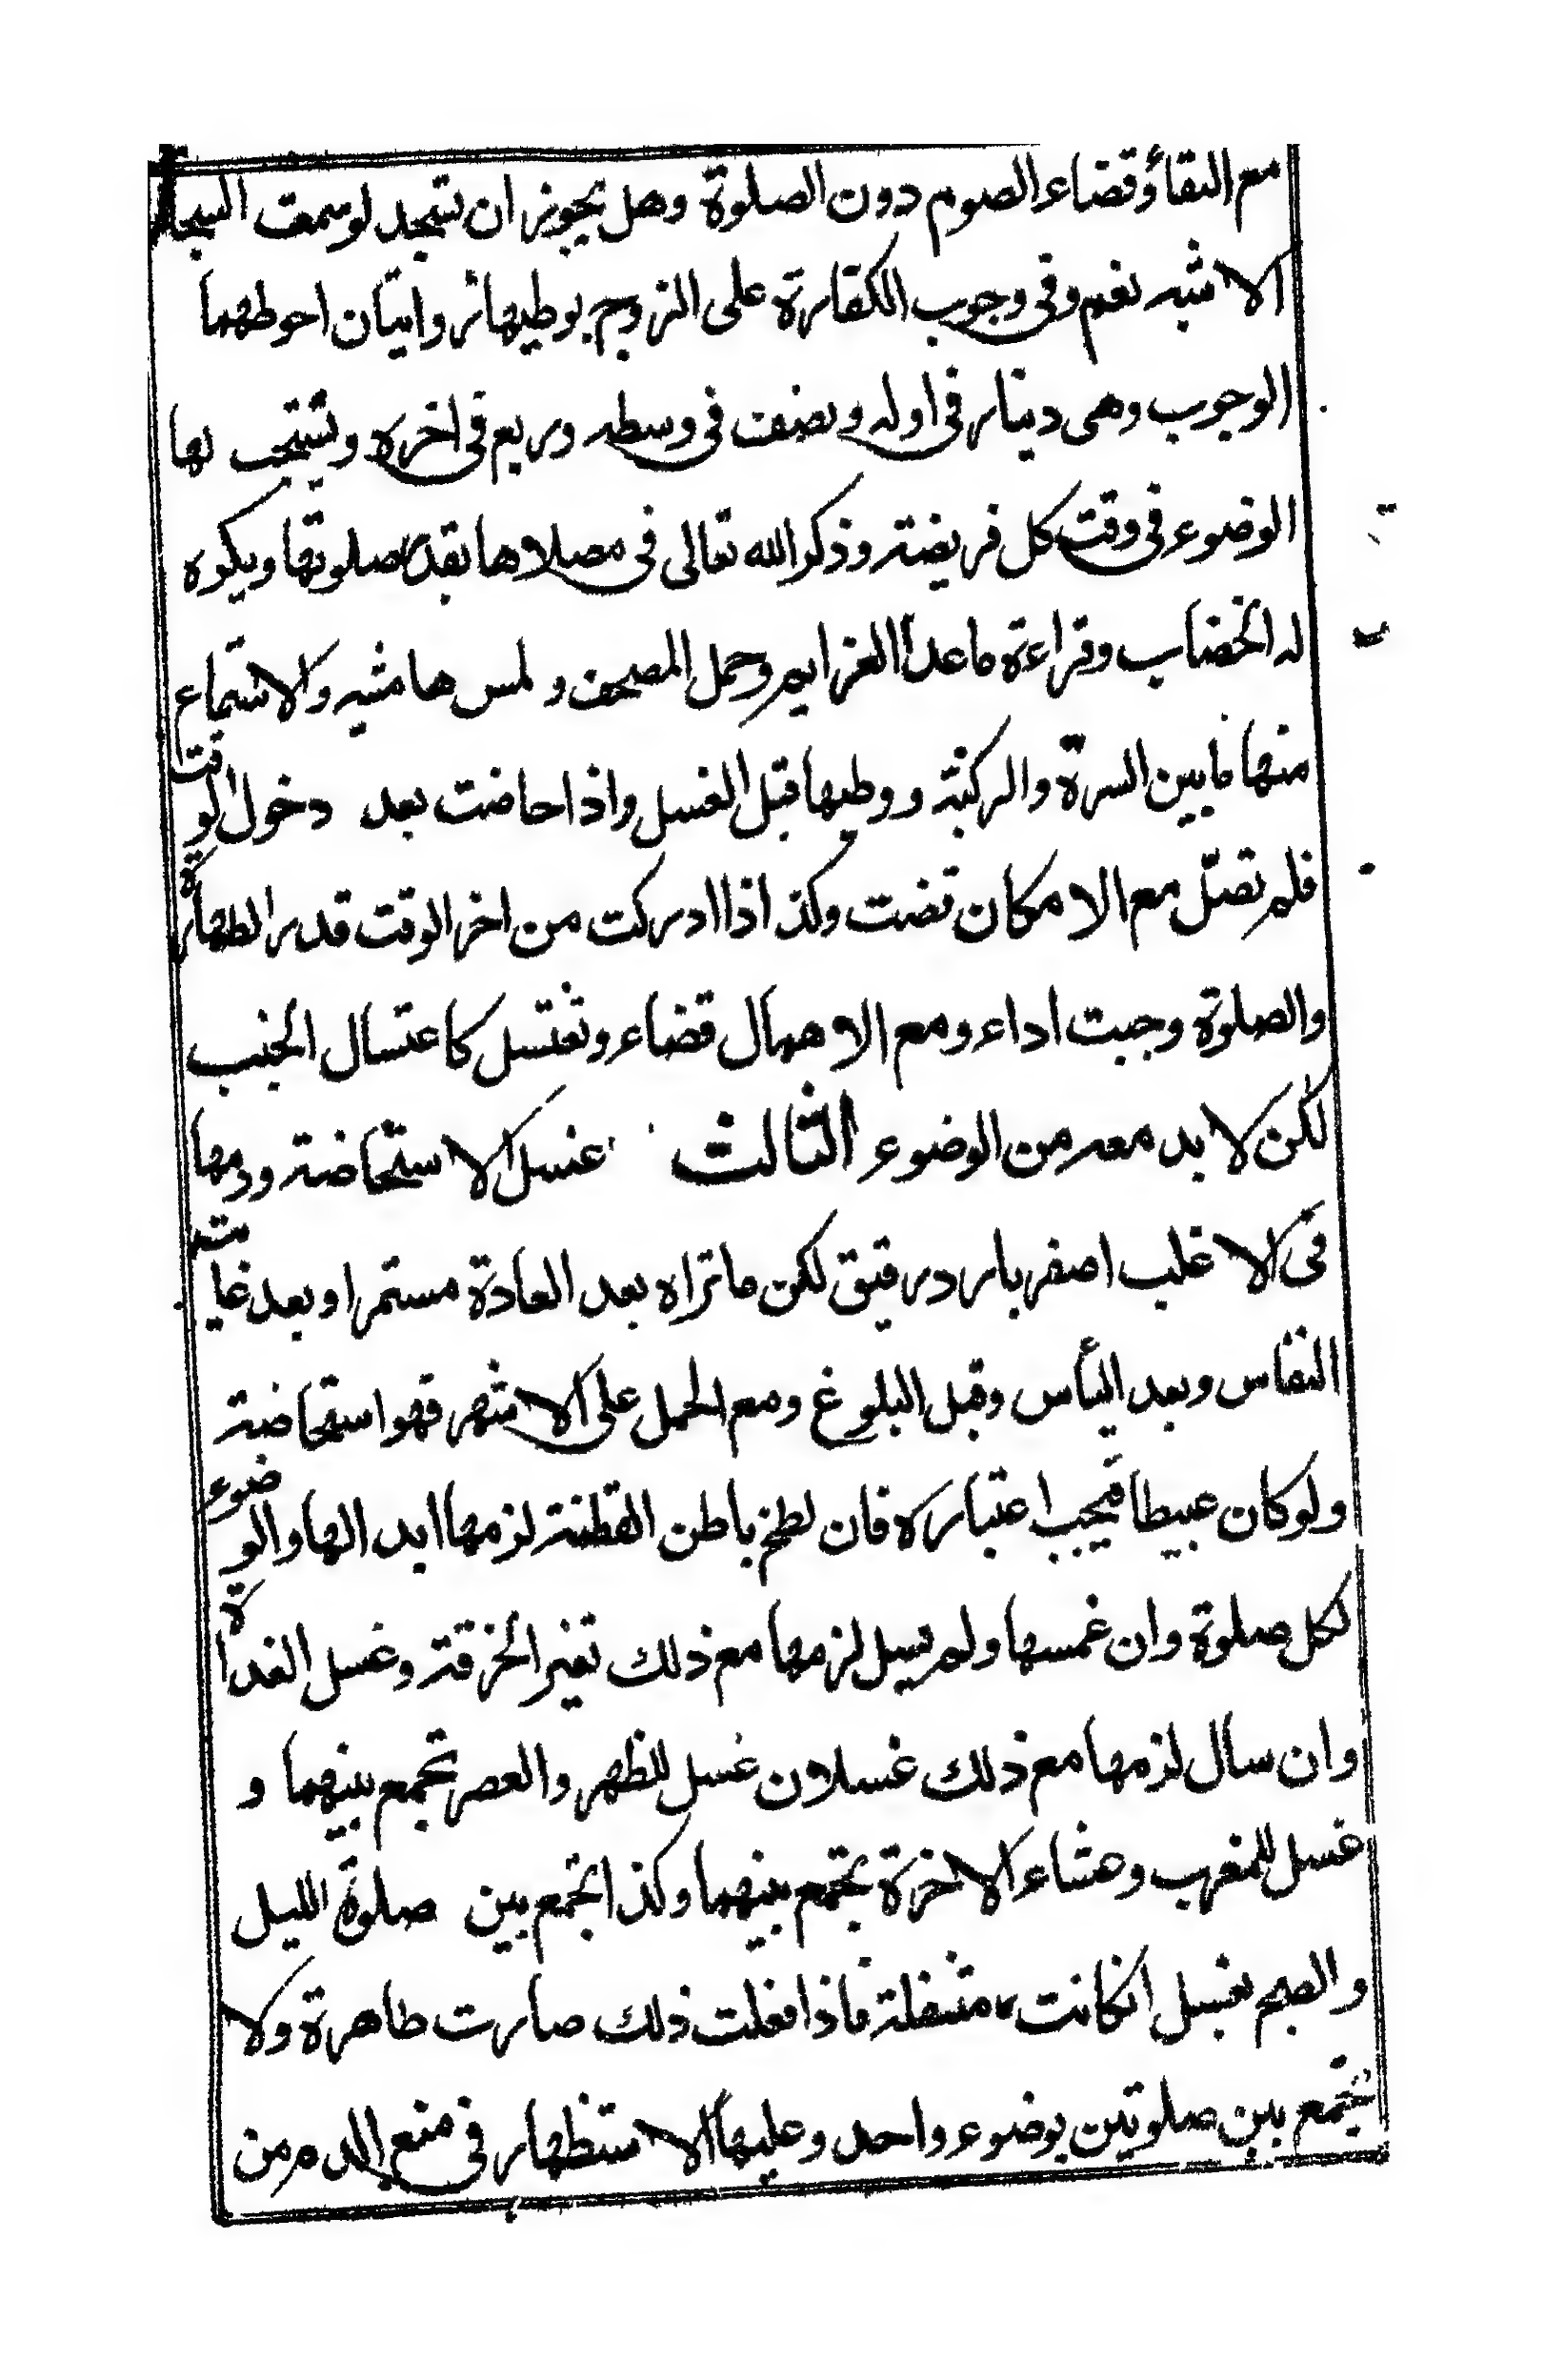 مع النقاء وقضاء الصوم دون الصلوة وهل يجوز ان تسجد لو سمعت السجدة
الاشبه نعم وفى وجوب الكفارة على الزوج بوطيها روايتان احوطهما
الوجوب وهى دينار فى اوله ونصف فى وسطه وربع فى اخره ويستحب لها
الوضوء فى وقت كل فريضة وذكر الله تعالى فى مصلاها بقدر صلوتها ويكره
له الخضاب وقراءة ما عدا العزايم وحمل المصحف و لمس هامشه والاستماع
منها ما بين السرة والركبة ووطيها قبل الغسل واذا حاضت بعد دخول الوقت
فلم تصل مع الامكان قضت وكذا اذا ادركت من اخر الوقت قدر الطهارة
والصلوة وجبت اداء ومع الاهمال قضاء وتغتسل كاغتسال الجنب
لكن لا بد معه من الوضوء الثالث غسل الاستحاضة ودمها
فى الاغلب اصفر بارد رقيق لكن ما تراه بعد العادة مستمرا وبعد غاية
النفاس وبعد اليأس وقبل البلوغ ومع الحمل على الاشهر فهو استحاضة
ولو كان عبيطا فيجب اعتباره فان لطخ باطن القطنة لزمها ابدالها والوضوء
لكل صلوة وان غمسها ولم يسل لزمها مع ذلك تغير الخرقة وغسل الغداة
وان سال لزمها مع ذلك غسلان غسل للظهر والعصر تجمع بينهما و
غسل للمغرب وعشاء الاخرة تجمع بينهما وكذا تجمع بين صلوة الليل
والصبح بغسل انكانت متنفلة فاذا فعلت ذلك صارت طاهرة ولا
تجمع بين صلوتين بوضوء واحد وعليها الاستظهار فى منع الدم من